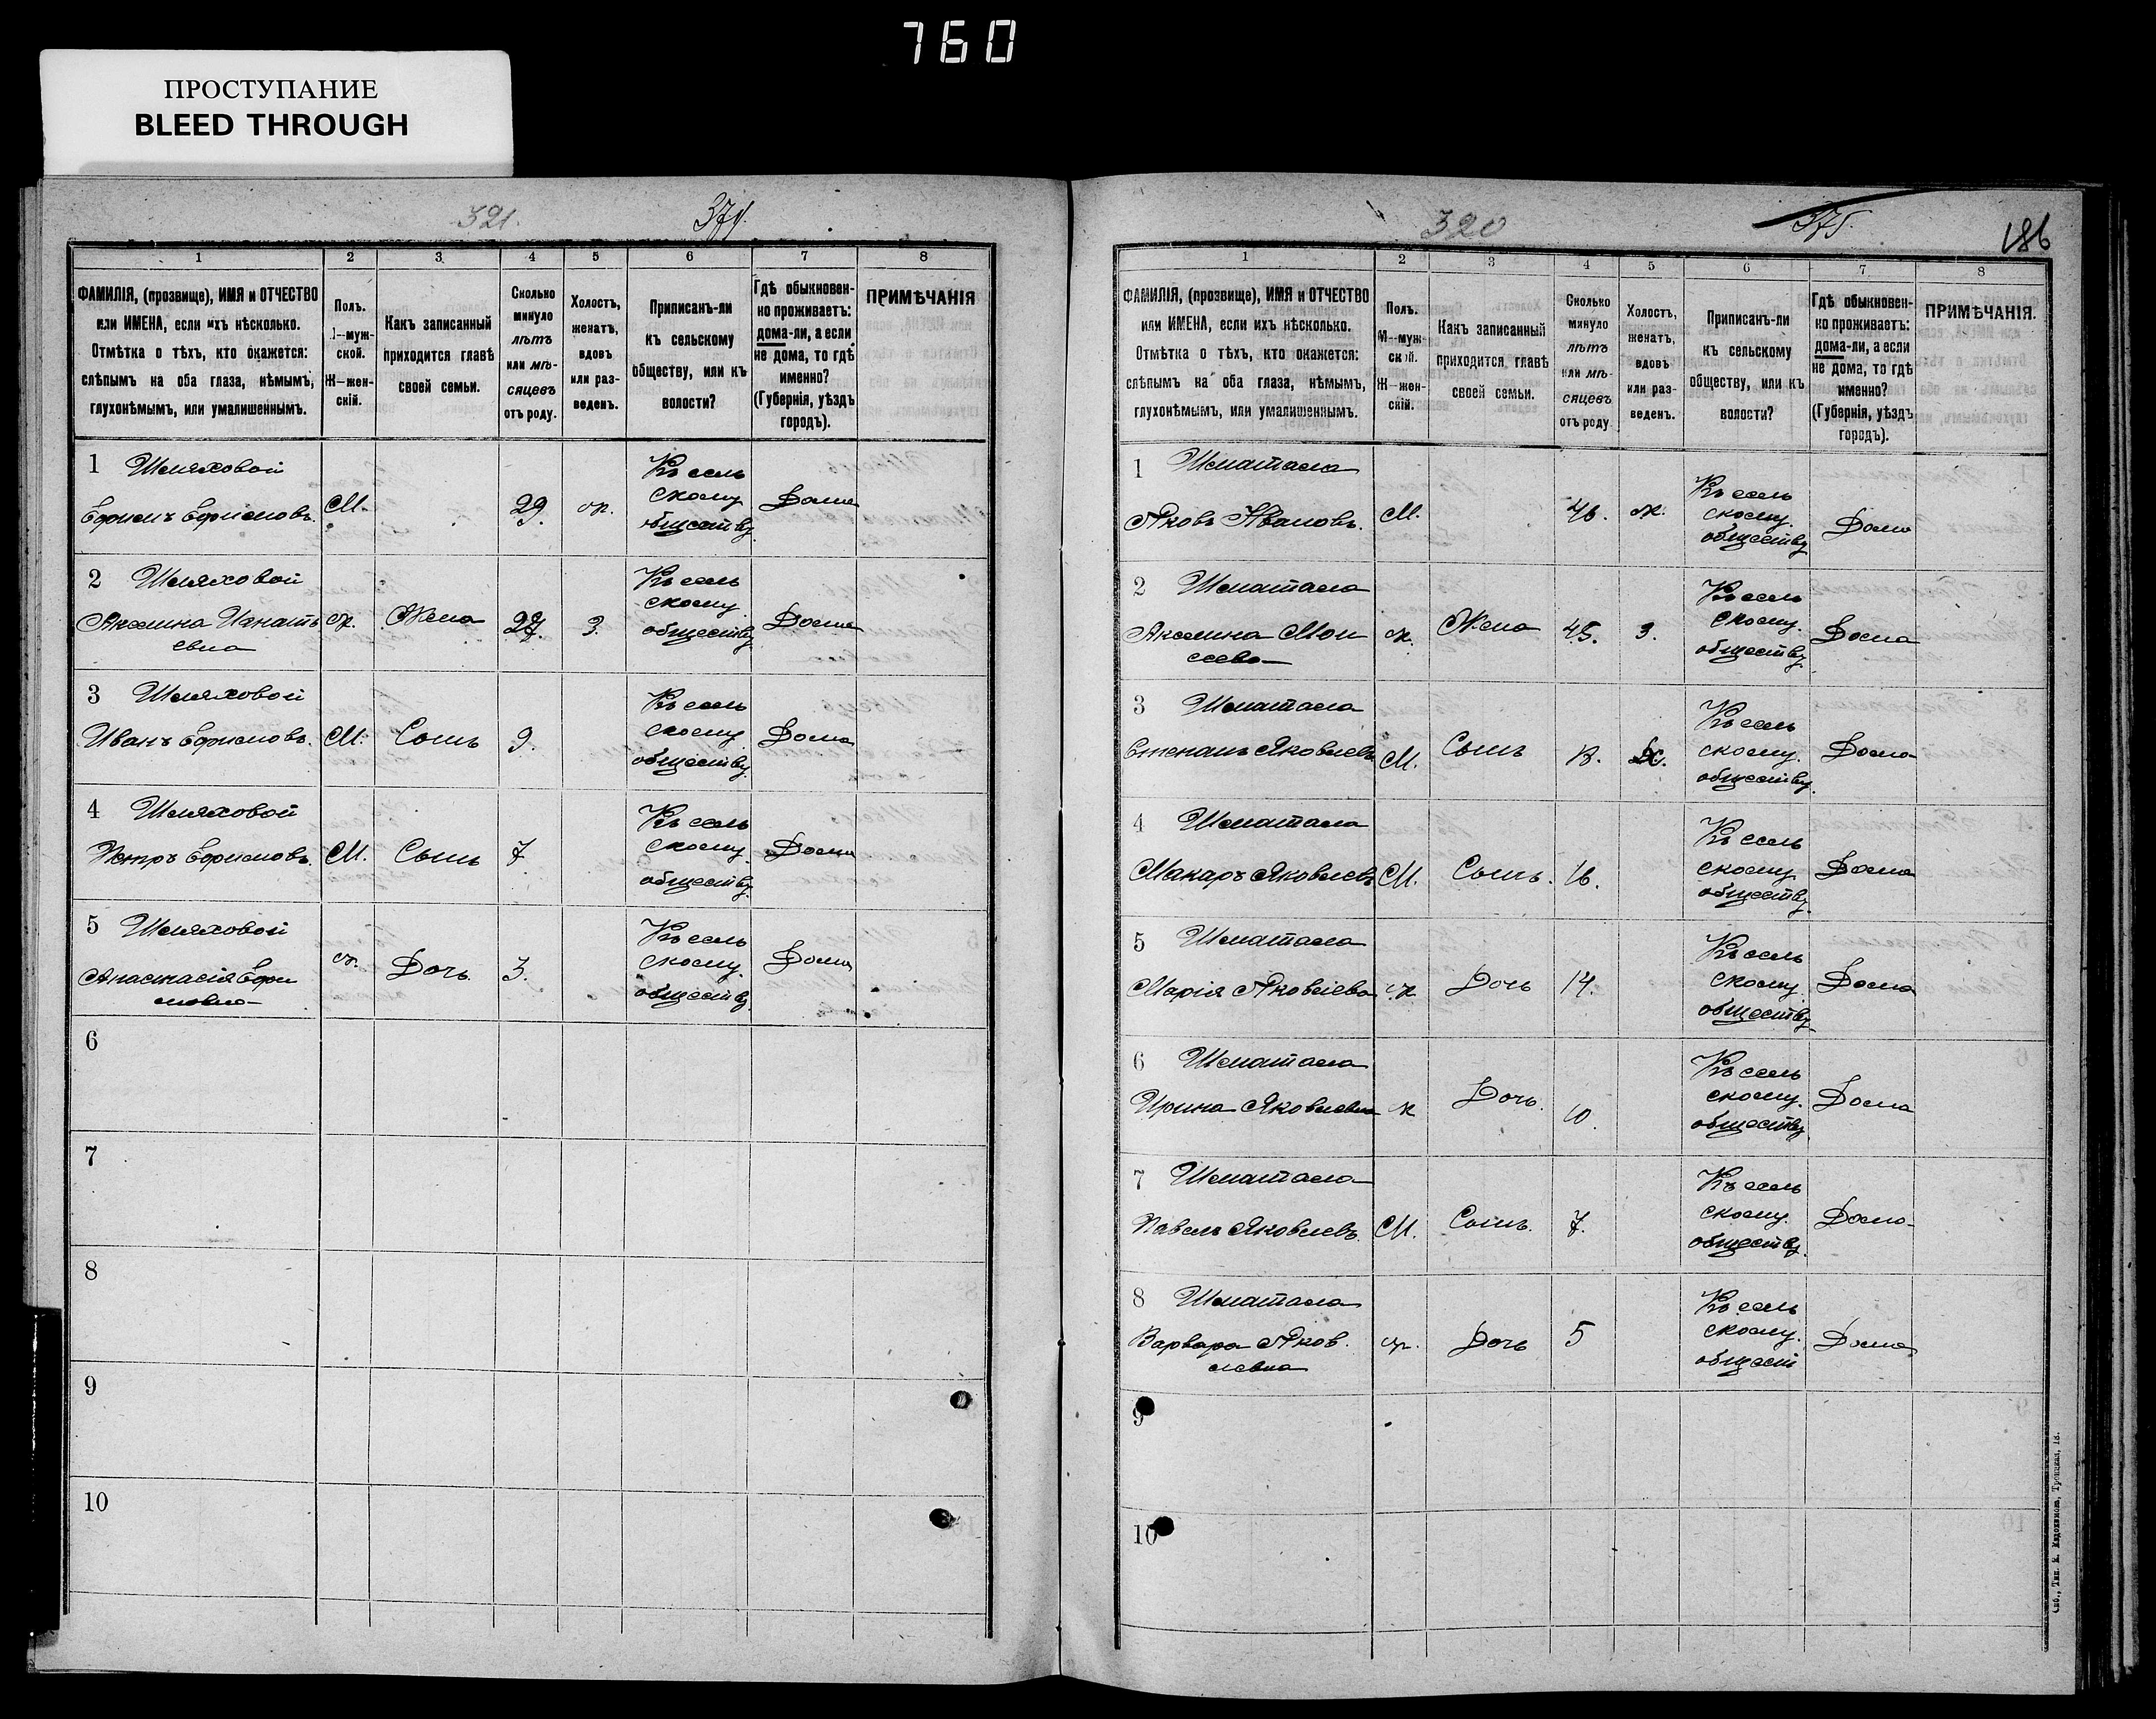 760
ПРОСТУПАНИЕ
BLEED THROUGH
321.
374.
1 2 3 4 5 6 7 8
ФАМИЛІЯ, (прозвище), ИМЯ и ОТЧЕСТВО
или ИМЕНА, если ихъ нѣсколько.
Отмѣтка о тѣхъ, кто окажется:
слѣпымъ на оба глаза, нѣмымъ,
глухонѣмымъ, или умалишеннымъ.
Полъ.
М—муж-
ской.
Ж—жен-
скій.
Какъ записанный
приходится главѣ
своей семьи.
Сколько
минуло
лѣтъ
или мѣ-
сяцевъ
отъ роду.
Холостъ,
женатъ,
вдовъ
или раз-
веденъ.
Приписанъ-ли
къ сельскому
обществу, или къ
волости?
Гдѣ обыкновен-
но проживаетъ:
дома-ли, а если
не дома, то гдѣ
именно?
(Губернія, уѣздъ
городъ).
ПРИМѢЧАНІЯ
1 Шляховой
Ефимъ Ефимовъ. М. 29. ж.
Къ сель
скому
обществу
Дома
2 Шляховой
Акилина Игнать
евна
ж. Жена 3.
Къ сель
скому
обществу
Дома
3 Шляховой
Иванъ Ефимовъ. М. Сынъ 9.
Къ сель
скому
обществу
Дома
4 Шляховой
Петръ Ефимовъ. М. Сынъ 7
Къ сель
скому
обществу.
Дома
5 Шляховой
Анастасія Ефи
мовна
ж. Дочь 3.
Къ сель
скому.
обществу
Дома
6
7
8
9
10
320
375.
186
1 2 3 4 5 6 7 8
ФАМИЛІЯ, (прозвище), ИМЯ и ОТЧЕСТВО
или ИМЕНА, если ихъ нѣсколько.
Отмѣтка о тѣхъ, кто окажется:
слѣпымъ на оба глаза, нѣмымъ,
глухонѣмымъ, или умалишеннымъ.
Полъ.
М—муж-
ской.
Ж—жен-
скій.
Какъ записанный
приходится главѣ
своей семьи.
Сколько
минуло
лѣтъ
или мѣ-
сяцевъ
отъ роду.
Холостъ,
женатъ,
вдовъ
или раз-
веденъ.
Приписанъ-ли
къ сельскому
обществу, или къ
волости?
Гдѣ обыкновен-
но проживаетъ:
дома-ли, а если
не дома, то гдѣ
именно?
(Губернія, уѣздъ
городъ).
ПРИМѢЧАНІЯ.
1 Шматала
Яковъ Ивановъ. М. 46. ж.
Къ сель
скому.
обществу
Дома
2 Шматала
Акилина Мои
сеева
ж. Жена 45. з.
Къ сель
скому.
обществу
Дома
3 Шматала
Степанъ Яковлевъ М. Сынъ Х.
Къ сель
скому.
обществу.
Дома
4 Шматала
Макаръ Яковлевъ М. Сынъ. 16.
Къ сель
скому
обществу.
Дома
5 Шматала
Марія Яковлева ж Дочь 14.
Къ сель
скому
обществу
Дома
6 Шматала
Ирина Яковлевна ж Дочь. 10.
Къ сель
скому.
обществу
Дома
7 Шматала
Павелъ Яковлевъ. М. Сынъ. 7.
Къ сель
скому.
обществу.
Дома
8 Шматала
Варвара Яков.
левна
ж. Дочь 5
Къ сель
скому.
общест
Дома
9
10
Спб., Тип. Е. Евдокимова, Троицкая, 18.